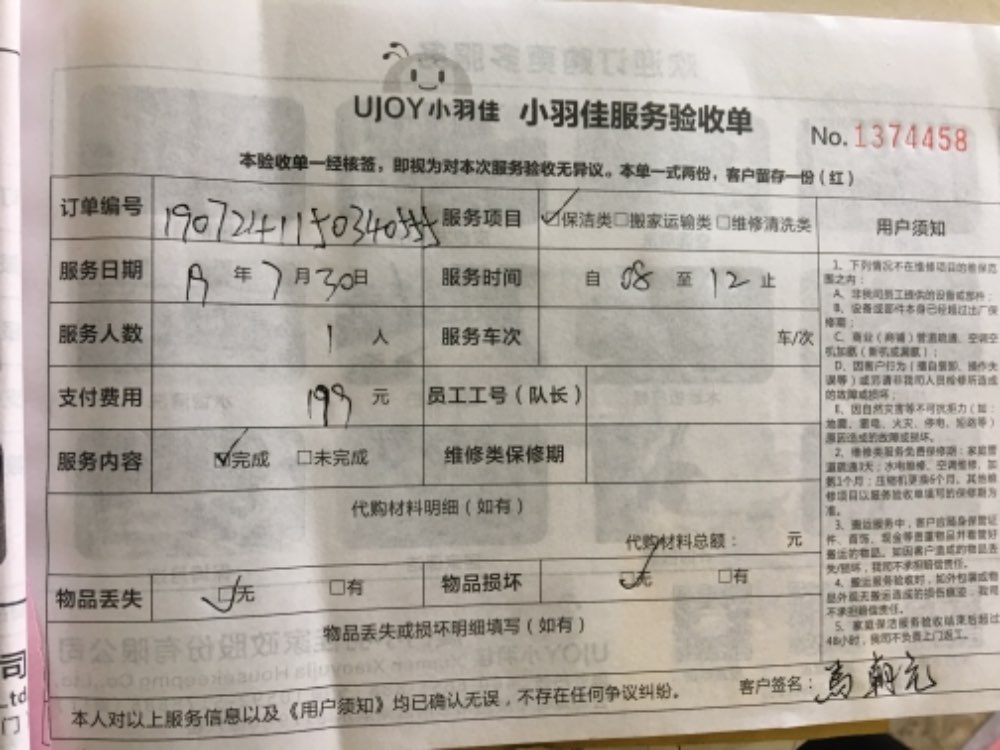 UJOY小羽佳 小羽佳服务验收单
No.1374458
本验收单一经核签，即视为对本次服务验收无异议。本单一式两份，客户留存一份（红）
订单编号 服务项目 ☑保洁类□搬家运输类□维修清洗类
服务日期 19年7月30日 服务时间 自08至12止
服务人数 1人 服务车次 车/次
支付费用 199元 员工工号（队长）
服务内容 ☑完成 □未完成 维修类保修期
代购材料明细（如有）
代购材料总额： 元
物品丢失 ☑无 □有 物品损坏 ☑无 □有
物品丢失或损坏明细填写（如有）
客户签名：
本人对以上服务信息以及《用户须知》均已确认无误，不存在任何争议纠纷。
用户须知
1、下列情况不在维修项目的维保范
围之内：
A、非我司员工提供的设备或部件；
B、设备或部件本身已经超过出厂保
修期；
C、商业（商铺）管道疏通、空调空
机加氨（新机或漏氨）；
D、因客户行为（擅自装卸、操作失
误等）或另请非我司人员检修所造成
的故障或损坏；
E、因自然灾害等不可抗拒力（如：
地震、雷电、火灾、停电、短路等）
原因造成的故障或损坏。
2、维修类服务免费保修期：家庭管
道疏通3天；水电维修、空调维修、加
氨1个月；压缩机更换6个月，其他维
修项目以服务验收单填写的保修期为
准。
3、搬运服务中，客户应随身保管证
件、首饰、现金等贵重物品并看管好
搬运的物品。如因客户造成的物品丢
失/损坏，我司不承担赔偿责任。
4、搬运服务验收时，如外包装或物
品外观无搬运造成的损伤痕迹，我司
不承担赔偿责任。
5、家庭保洁服务验收结束后超过
48小时，我司不负责上门返工。